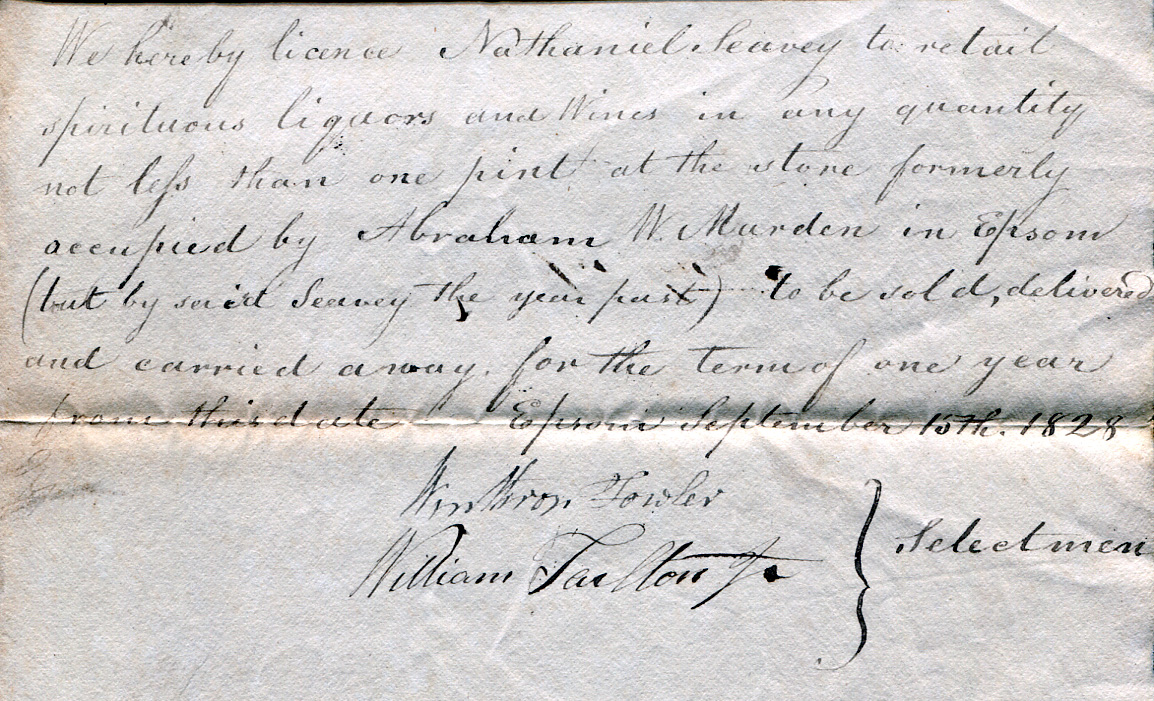 We hereby licence Nathaniel Seavey to retail
spirituous liquors and Wines in any quantity
not less than one pint at the store formerly
occupied by Abraham W. Marden in Epsom
(but by said Seavey the year past) to be sold, delivered
and carried away. for the term of one year
from this date Epsom September 15th. 1828
Winthrop Fowler
William Tarlton Jr
Selectmen